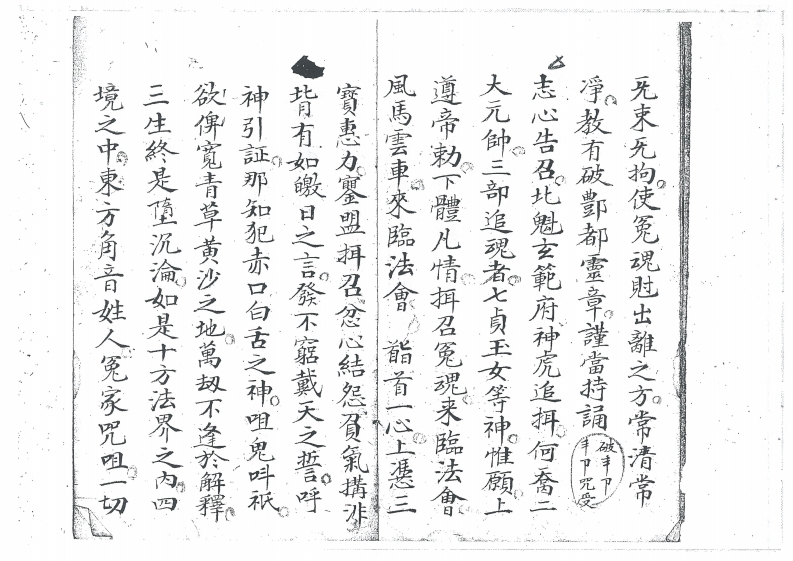 旡束旡拘使冤魂尀出離之方常清常
凈教有破酆都靈章謹當持誦破丰卩丰卩咒受
志心告召北魁玄範府神虎追揖何喬二
大元帥三部追魂者七貞玉女等神惟願上
遵帝勅下體凡情揖召冤魂来臨法會
風馬雲車來臨法會　稽首一心上憑三
寶惠力鑒盟揖召忿心結怨負氣搆非
皆有如皦日之言發不窮戴天之誓呼
神引証那知犯赤口白舌之神咀鬼呌祇
欲俾寃青草黃沙之地萬刼不逢於解釋
三生終是墮沉淪如是十方法界之內四
境之中東方角音姓人冤家咒咀一切